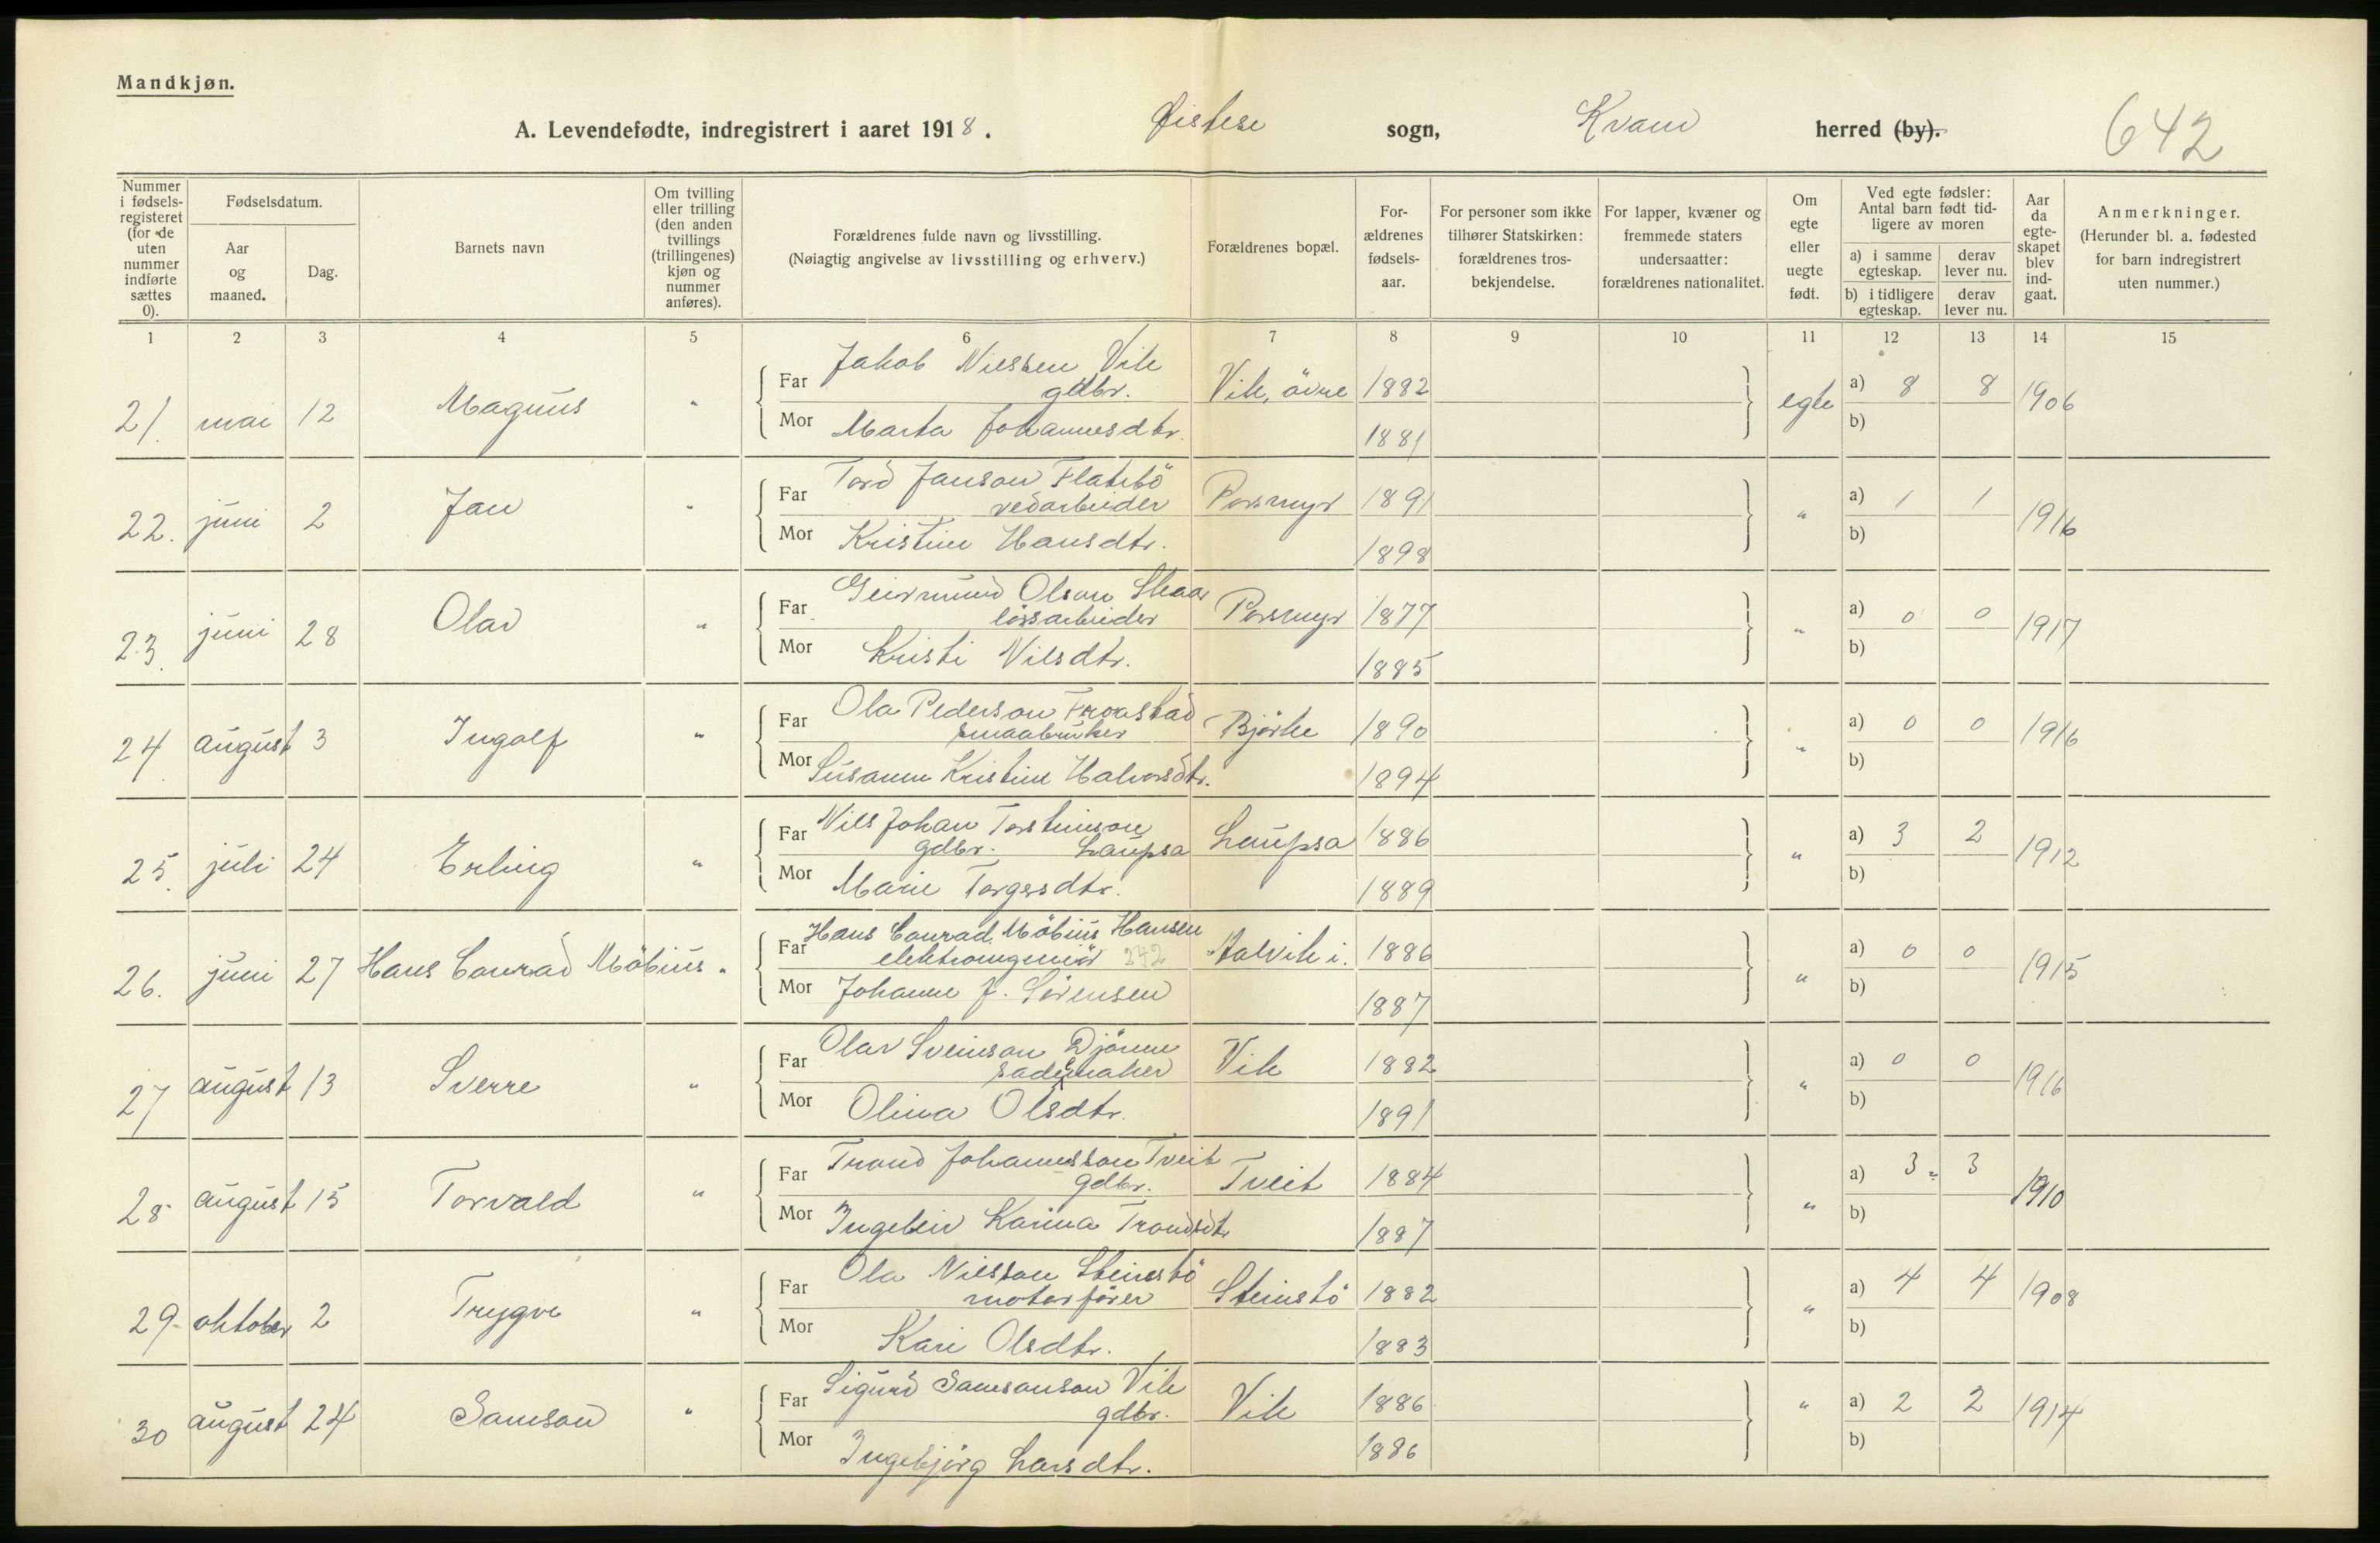 Mandkjøn.
A. Levendefødte, indregistrert i aaret 1918. Øistese sogn, Kvam herred (by). 642
Nummer i fødsels-registeret (for de uten nummer indførte sættes 0).
Fødselsdatum.
Aar og maaned.
Dag.
Barnets navn
Om tvilling eller trilling (den anden tvillings (trillingenes) kjøn og nummer anføres).
Forældrenes fulde navn og livsstilling.
(Nøiagtig angivelse av livsstilling og erhverv.)
Forældrenes bopæl.
For-ældrenes fødsels-aar.
For personer som ikke tilhører Statskirken: forældrenes tros-bekjendelse.
For lapper, kvæner og fremmede staters undersaatter: forældrenes nationalitet.
Om egte eller uegte født.
Ved egte fødsler: Antal barn født tid-ligere av moren
a) i samme egteskap.
derav lever nu.
b) i tidligere egteskap.
derav lever nu.
Aar da egte-skapet blev ind-gaat.
Anmerkninger.
(Herunder bl. a. fødested for barn indregistrert uten nummer.)
1 2 3 4 5 6 7 8 9 10 11 12 13 14 15
21. mai 12 Magnus " Far Jakob Nielsen Vik gdbr. Vik, övre 1882 egte a) 8 8 1906
Mor Marta Johannesdtr. 1881 b)
22. juni 2 Jan " Far Tord Janson Flatebö vedarbeider Porsmyr 1891 " a) 1 1 1916
Mor Kristine Hansdtr. 1898 b)
23. juni 28 Olav " Far Geirmund Olson Skaar lössarbeider Porsmyr 1877 " a) 0 0 1917
Mor Kristi Nilsdtr. 1885 b)
24 august 3 Ingolf " Far Ola Pederson Froastad smaabruker Björke 1890 " a) 0 0 1916
Mor Susanne Kristine Halvorsdtr. 1894 b)
25. juli 24 Erling " Far Nils Johan Torsteinson gdbr. Laupsa Laupsa 1886 " a) 3 2 1912
Mor Marie Torgersdtr. 1889 b)
26. juni 27 Hans Conrad Möbius " Far Hans Conrad Möbius Hansen elektroingeniör 272 Aalvik i. 1886 " a) 0 0 1915
Mor Johanne J. Sörensen 1887 b)
27 august 13 Sverre " Far Olav Sveinson Djönne sadelmaker Vik 1882 " a) 0 0 1916
Mor Olina Olsdtr. 1891 b)
28 august 15 Torvald " Far Trond Johannesson Tveit gdbr. Tveit 1884 " a) 3 3 1910
Mor Ingebeir Karina Trondsdtr 1887 b)
29. oktober 2 Trygve " Far Ola Nielson Steinstö motorförer Steinstö 1882 " a) 4 4 1908
Mor Kari Olsdtr. 1883 b)
30 august 24 Samson " Far Sigurd Samsonson Vik gdbr. Vik 1886 " a) 2 2 1914
Mor Ingebjörg Larsdtr. 1886 b)